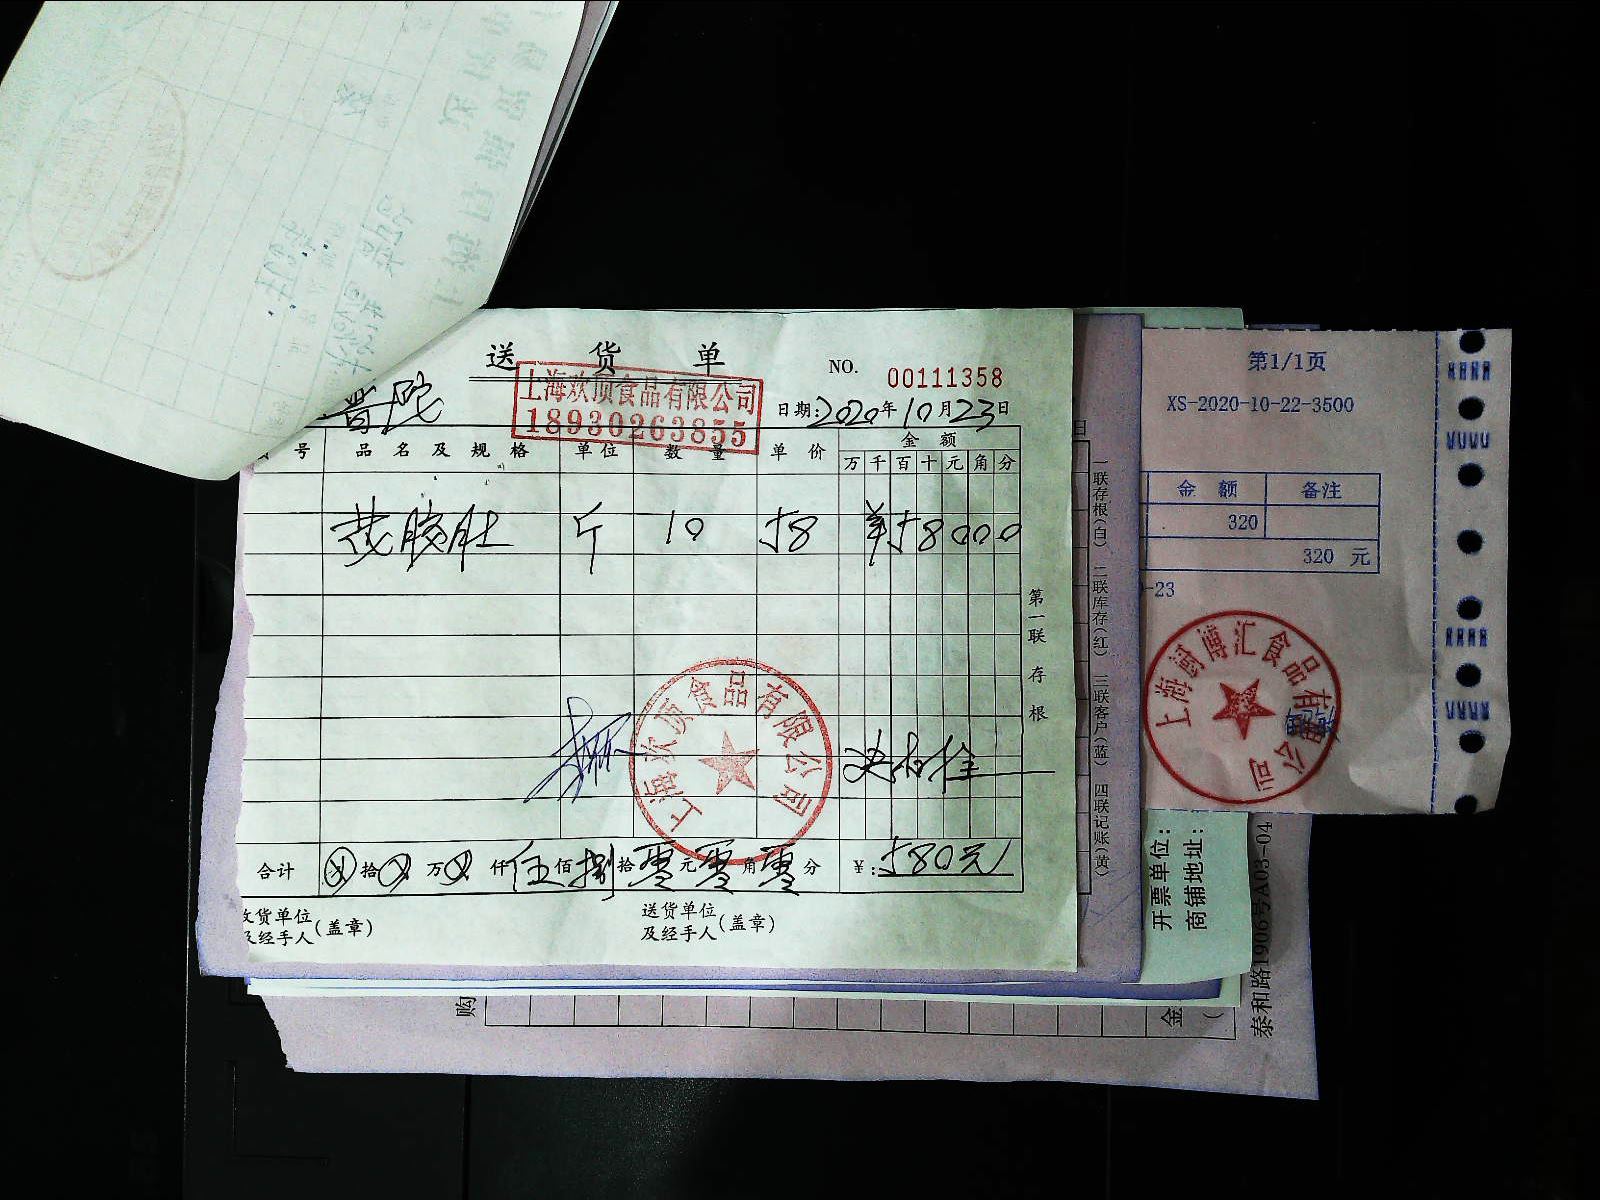 送 货 单
NO. 00111358
上海欢顶食品有限公司
18930263855
普陀
日期:2020年10月23日
号 品名及规格 单位 数量 单价 金额
万 千 百 十 元 角 分
花胶肚 斤 10 58 ¥58000
第一联 存根
上海欢顶食品有限公司
合计 拾 万 仟 伍 佰 捌 拾 零 元 零 角 零 分 ¥:580元
收货单位
及经手人(盖章)
送货单位
及经手人(盖章)
日
一联存根(白) 二联库存(红) 三联客户(蓝) 四联记账(黄)
第1/1页
XS-2020-10-22-3500
金 额 备注
320
320 元
-23
上海闽博汇食品有限公司
开票单位:
商铺地址:
泰和路1906号A03-04
购
金